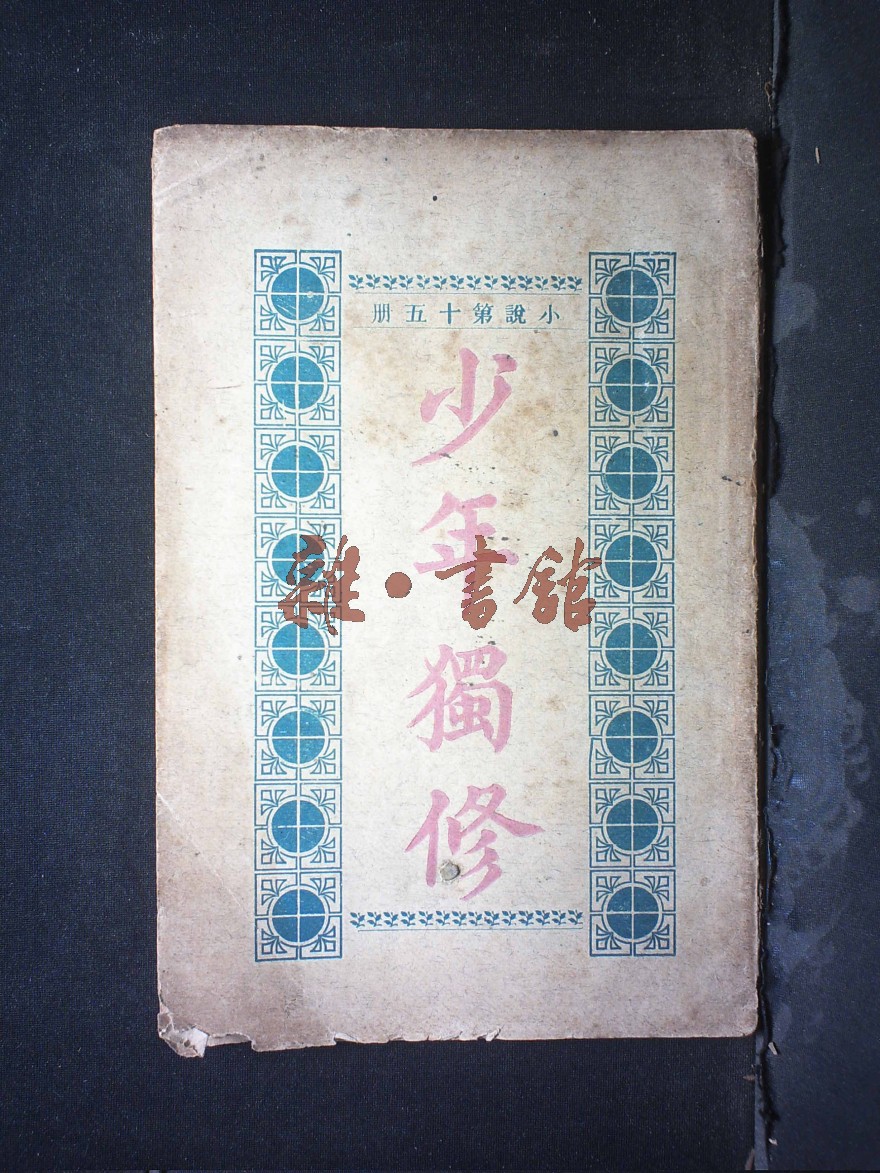 小說第十五册
少年獨修
雜·書舘